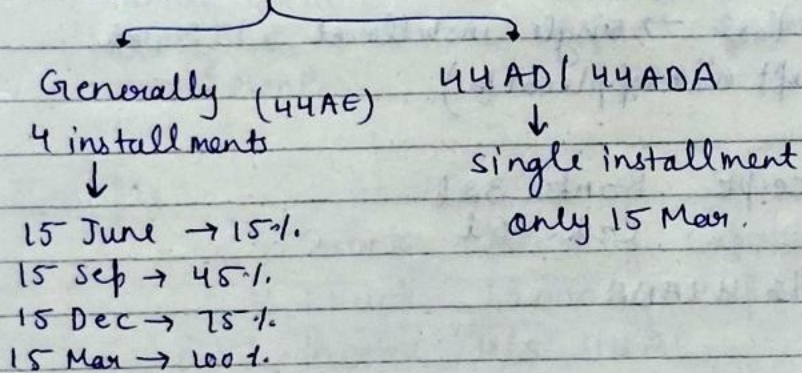 Generally (44AE)
4 installments
↓
15 June → 15%.
15 Sep → 45%.
15 Dec → 75%.
15 Mar → 100%.
44AD/44ADA
↓
single installment
only 15 Mar.